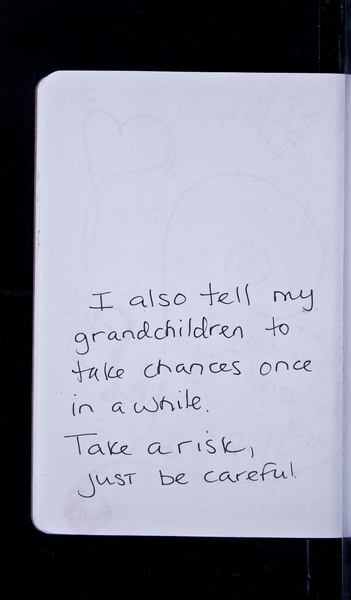 I also tell my
grandchildren to
take chances once
in a while.
Take a risk,
just be careful.